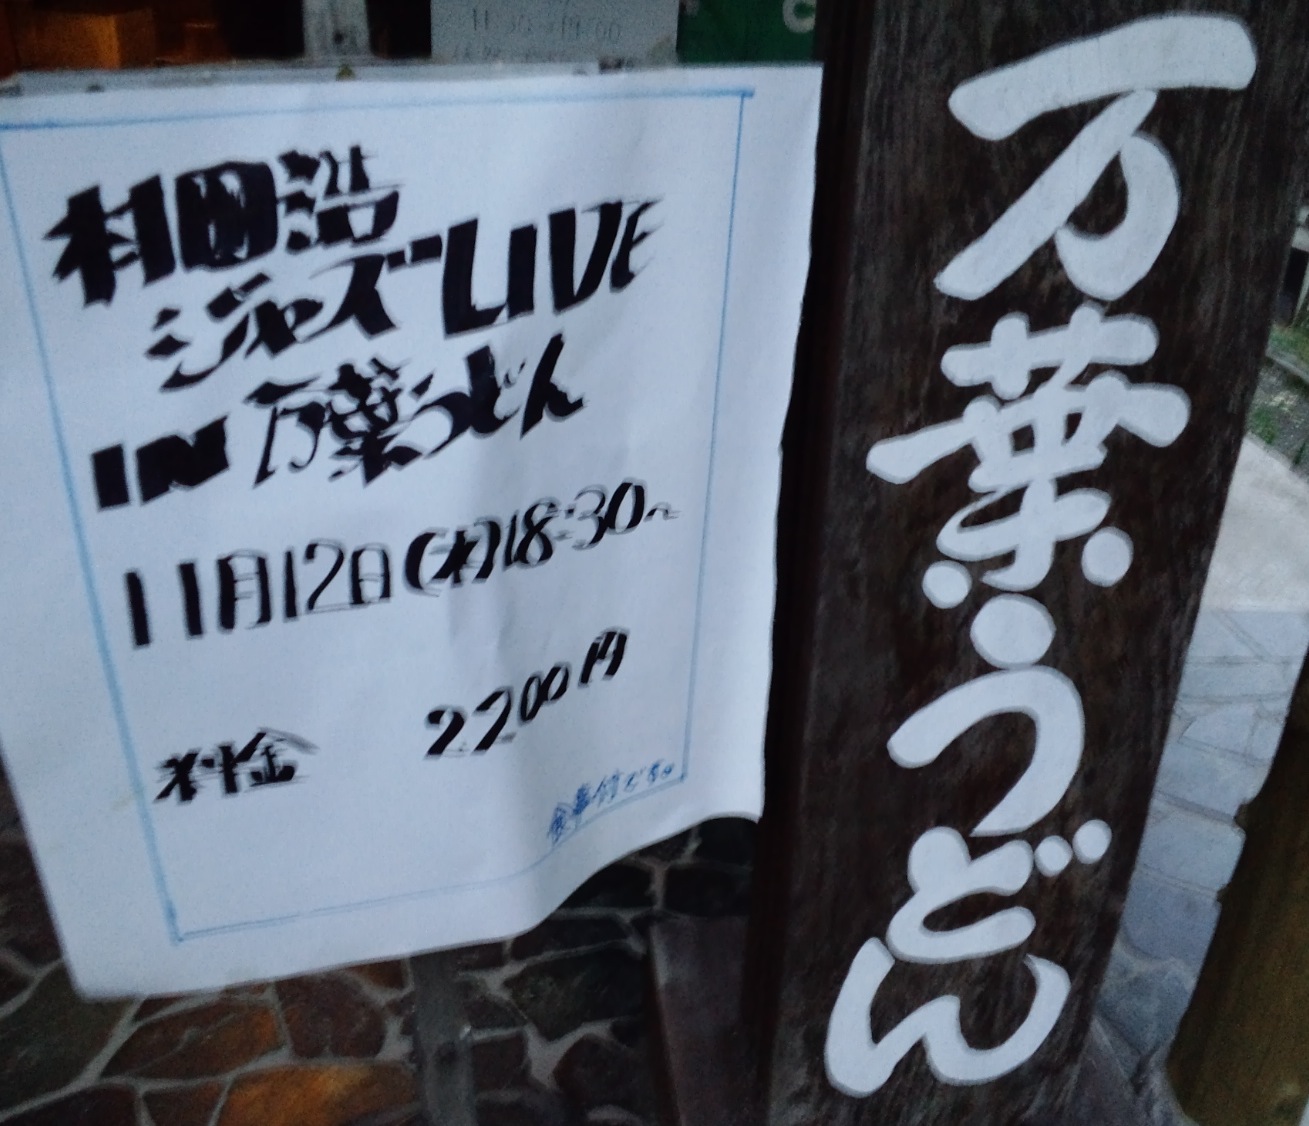 村田浩
ジャズLIVE
IN 万葉うどん
11月12日(水)18:30~
料金 2200円
食事付です。
万葉うどん